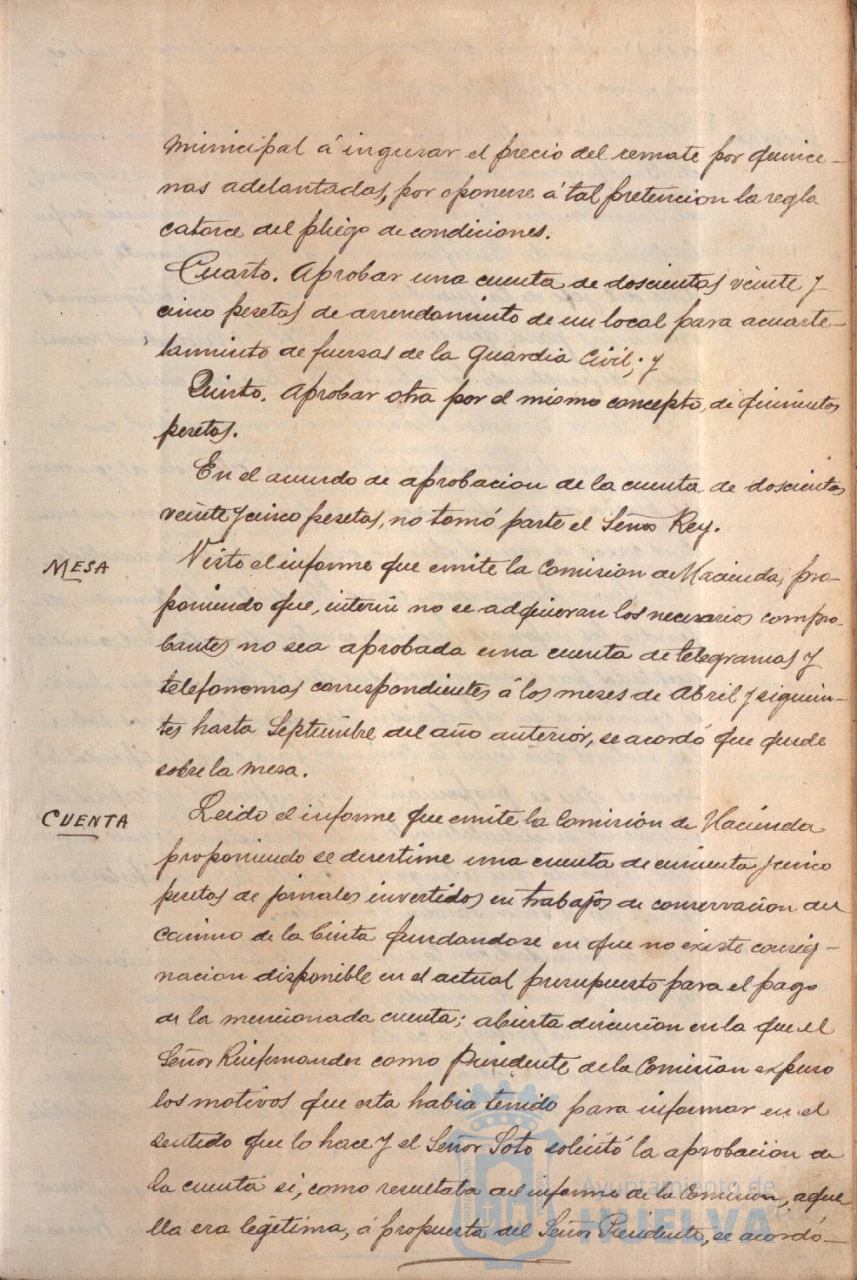 municipal á ingresar el precio del remate por quince-
nas adelantadas, por oponerse á tal pretencion la regla
catorce del pliego de condiciones.
Cuarto. Aprobar una cuenta de doscientas veinte y
cinco pesetas de arrendamiento de un local para acuarte-
lamiento de fuersas de la Guardia Civil; y
Quinto. Aprobar otra por el mismo concepto, de quinientas
pesetas.
En el acuerdo de aprobacion de la cuenta de doscientas
veinte y cinco pesetas, no tomó parte el Señor Rey.
MESA
Visto el informe que emite la Comision de Hacienda, pro-
poniendo que, interin no se adquieran los necesarios compro-
bantes no sea aprobada una cuenta de telegramas y
telefonemas correspondientes á los meses de Abril y siguien-
tes hasta Septiembre del año anterior, se acordó que quede
sobre la mesa.
CUENTA
Leido el informe que emite la Comisión de Hacienda
proponiendo se desestime una cuenta de cincuenta y cinco
pesetas de jornales invertidos en trabajos de conservacion del
camino de la Cinta fundandose en que no existe consig-
nacion disponible en el actual presupuesto para el pago
de la mencionada cuenta; abierta discusion en la que el
Señor Ruifernandez como Presidente de la Comisión expuso
los motivos que esta habia tenido para informar en el
sentido que lo hace y el Señor Soto solicitó la aprobacion de
la cuenta si, como resultaba del informe de la Comision, aque-
lla era legítima, á propuesta del Señor Presidente, se acordó
Ayuntamiento de
HUELVA